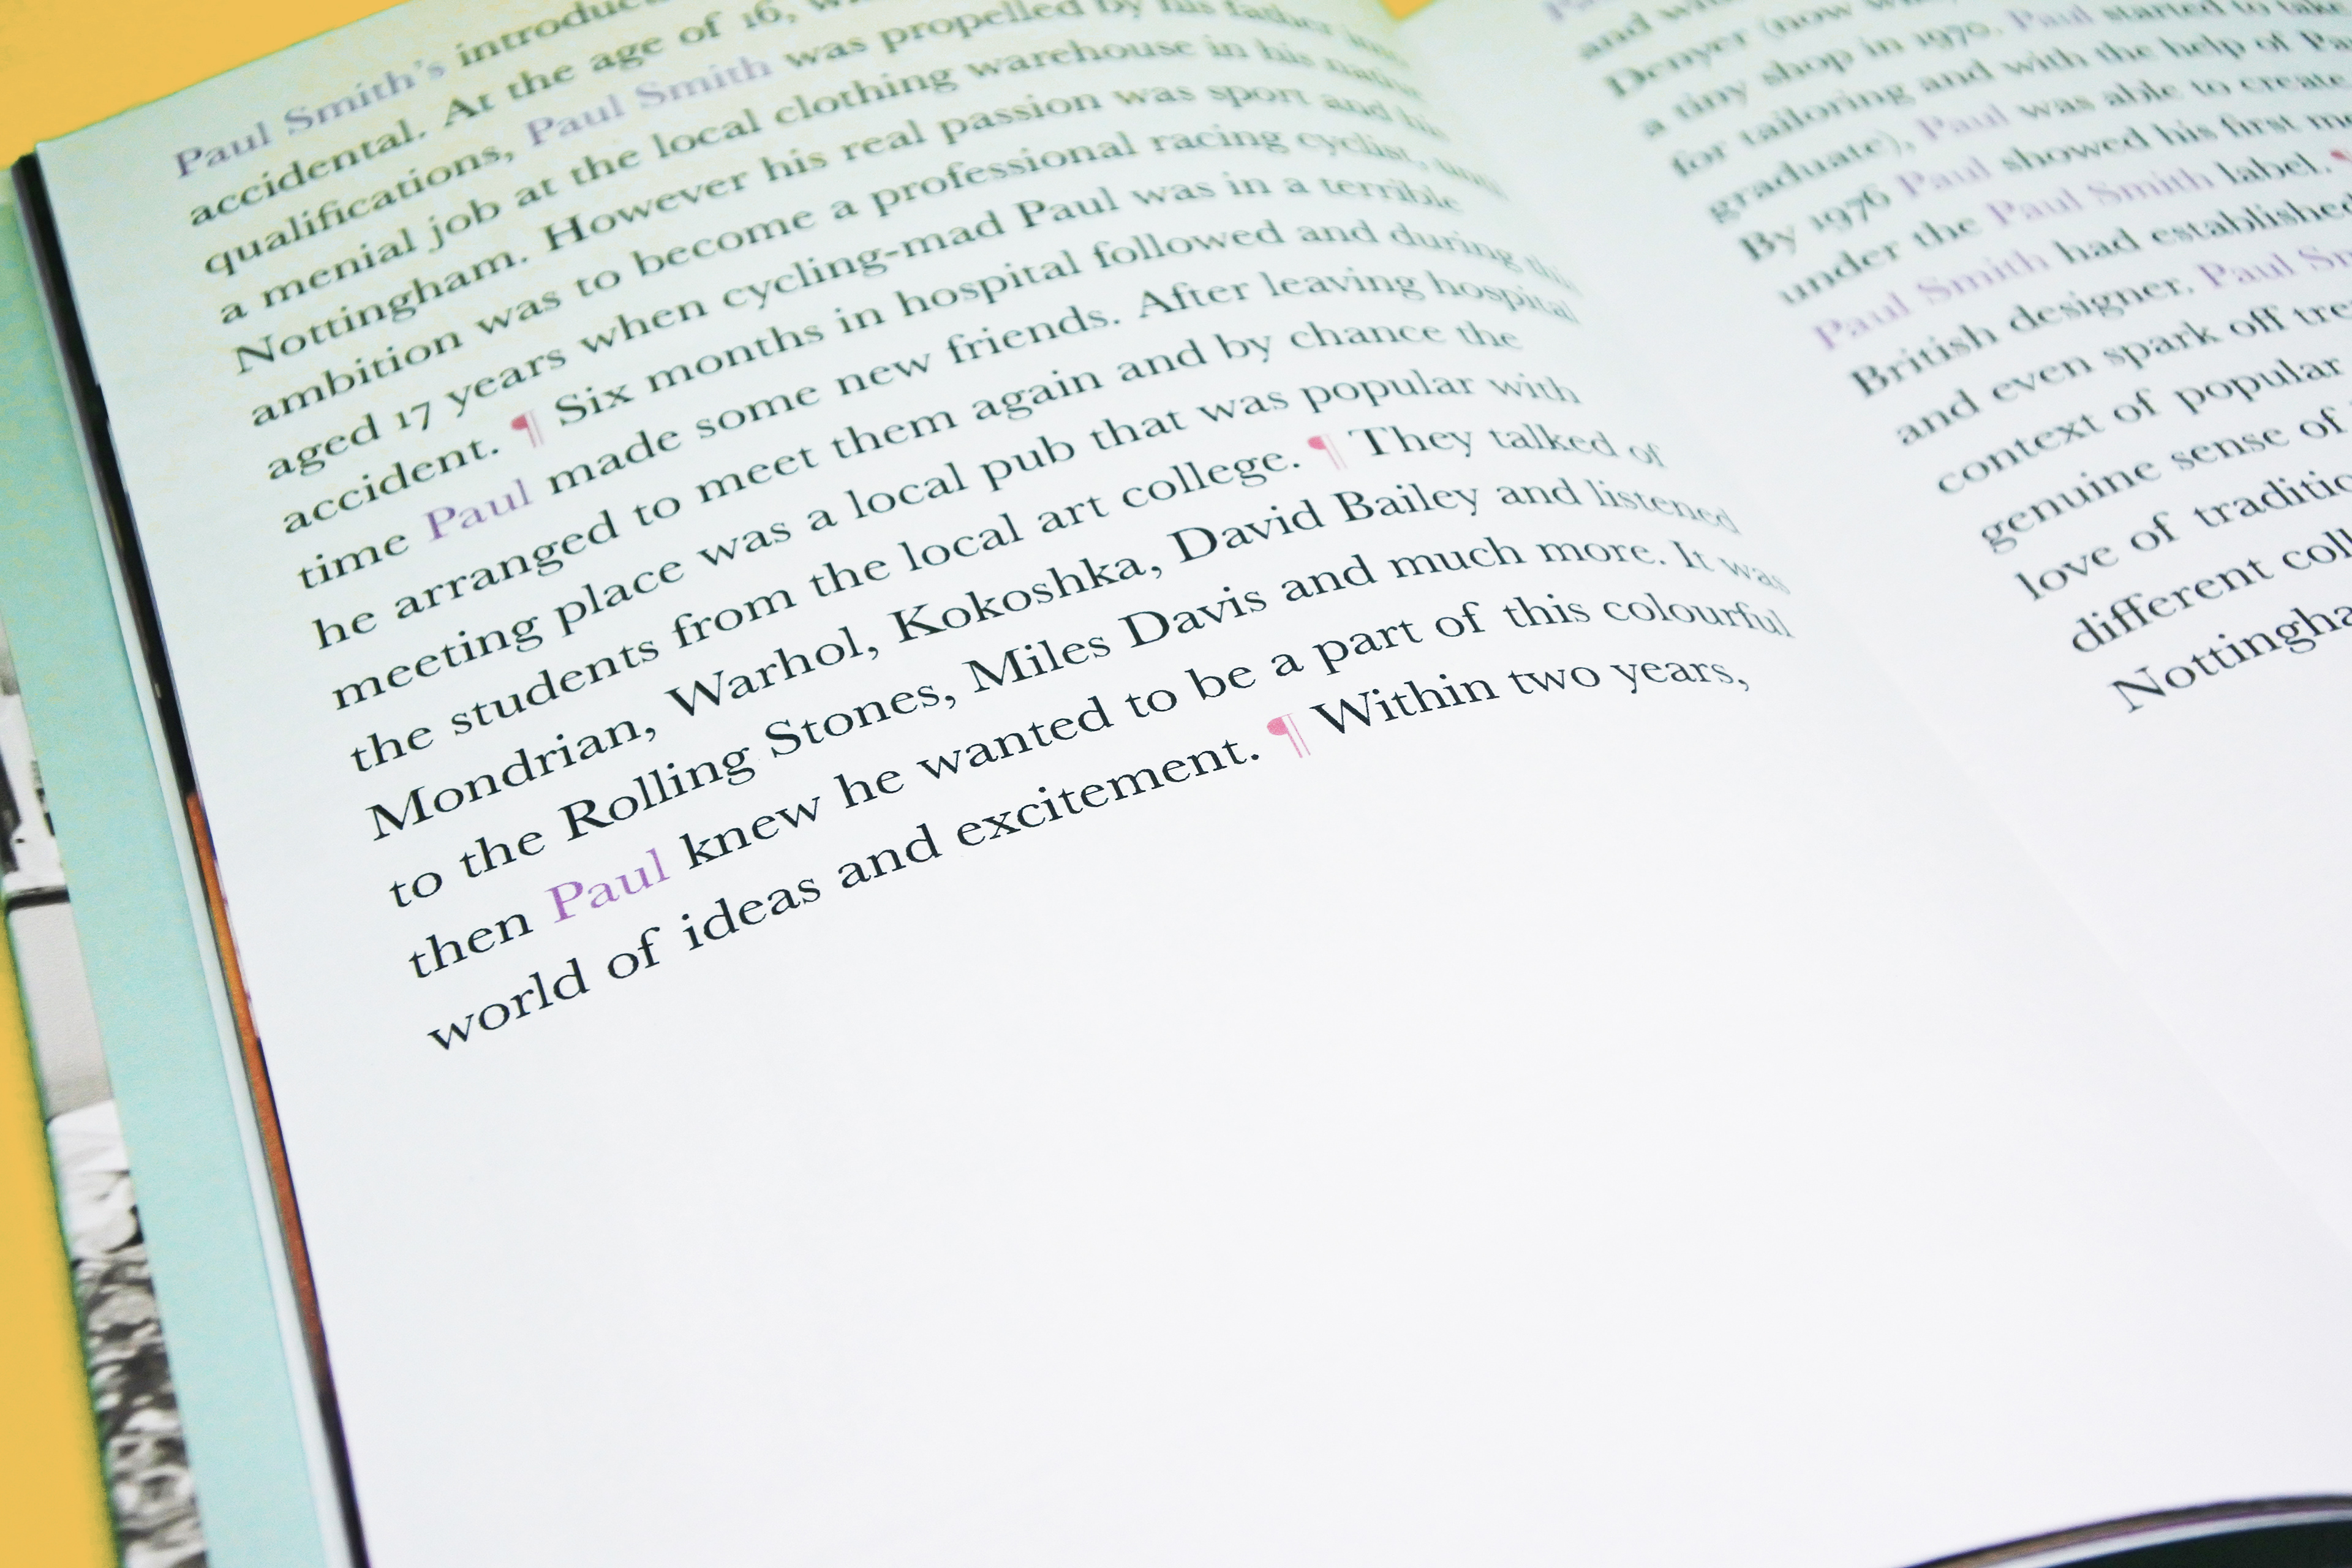 Paul Smith's
accidental. At the age of 16,
qualifications, Paul Smith was propelled by his father into
a menial job at the local clothing warehouse in his native
Nottingham. However his real passion was sport and his
ambition was to become a professional racing cyclist, until
aged 17 years when cycling-mad Paul was in a terrible
accident. ¶ Six months in hospital followed and during this
time Paul made some new friends. After leaving hospital
he arranged to meet them again and by chance the
meeting place was a local pub that was popular with
the students from the local art college. ¶ They talked of
Mondrian, Warhol, Kokoshka, David Bailey and listened
to the Rolling Stones, Miles Davis and much more. It was
then Paul knew he wanted to be a part of this colourful
world of ideas and excitement. ¶ Within two years,
and
Denyer (now
a tiny shop in 1970. Paul started to take
for tailoring and with the help of
graduate), Paul was able to create
By 1976 Paul showed his first
under the Paul Smith label. ¶
Paul Smith had established
British designer. Paul
and even spark off
context of popular
genuine sense of
love of
different